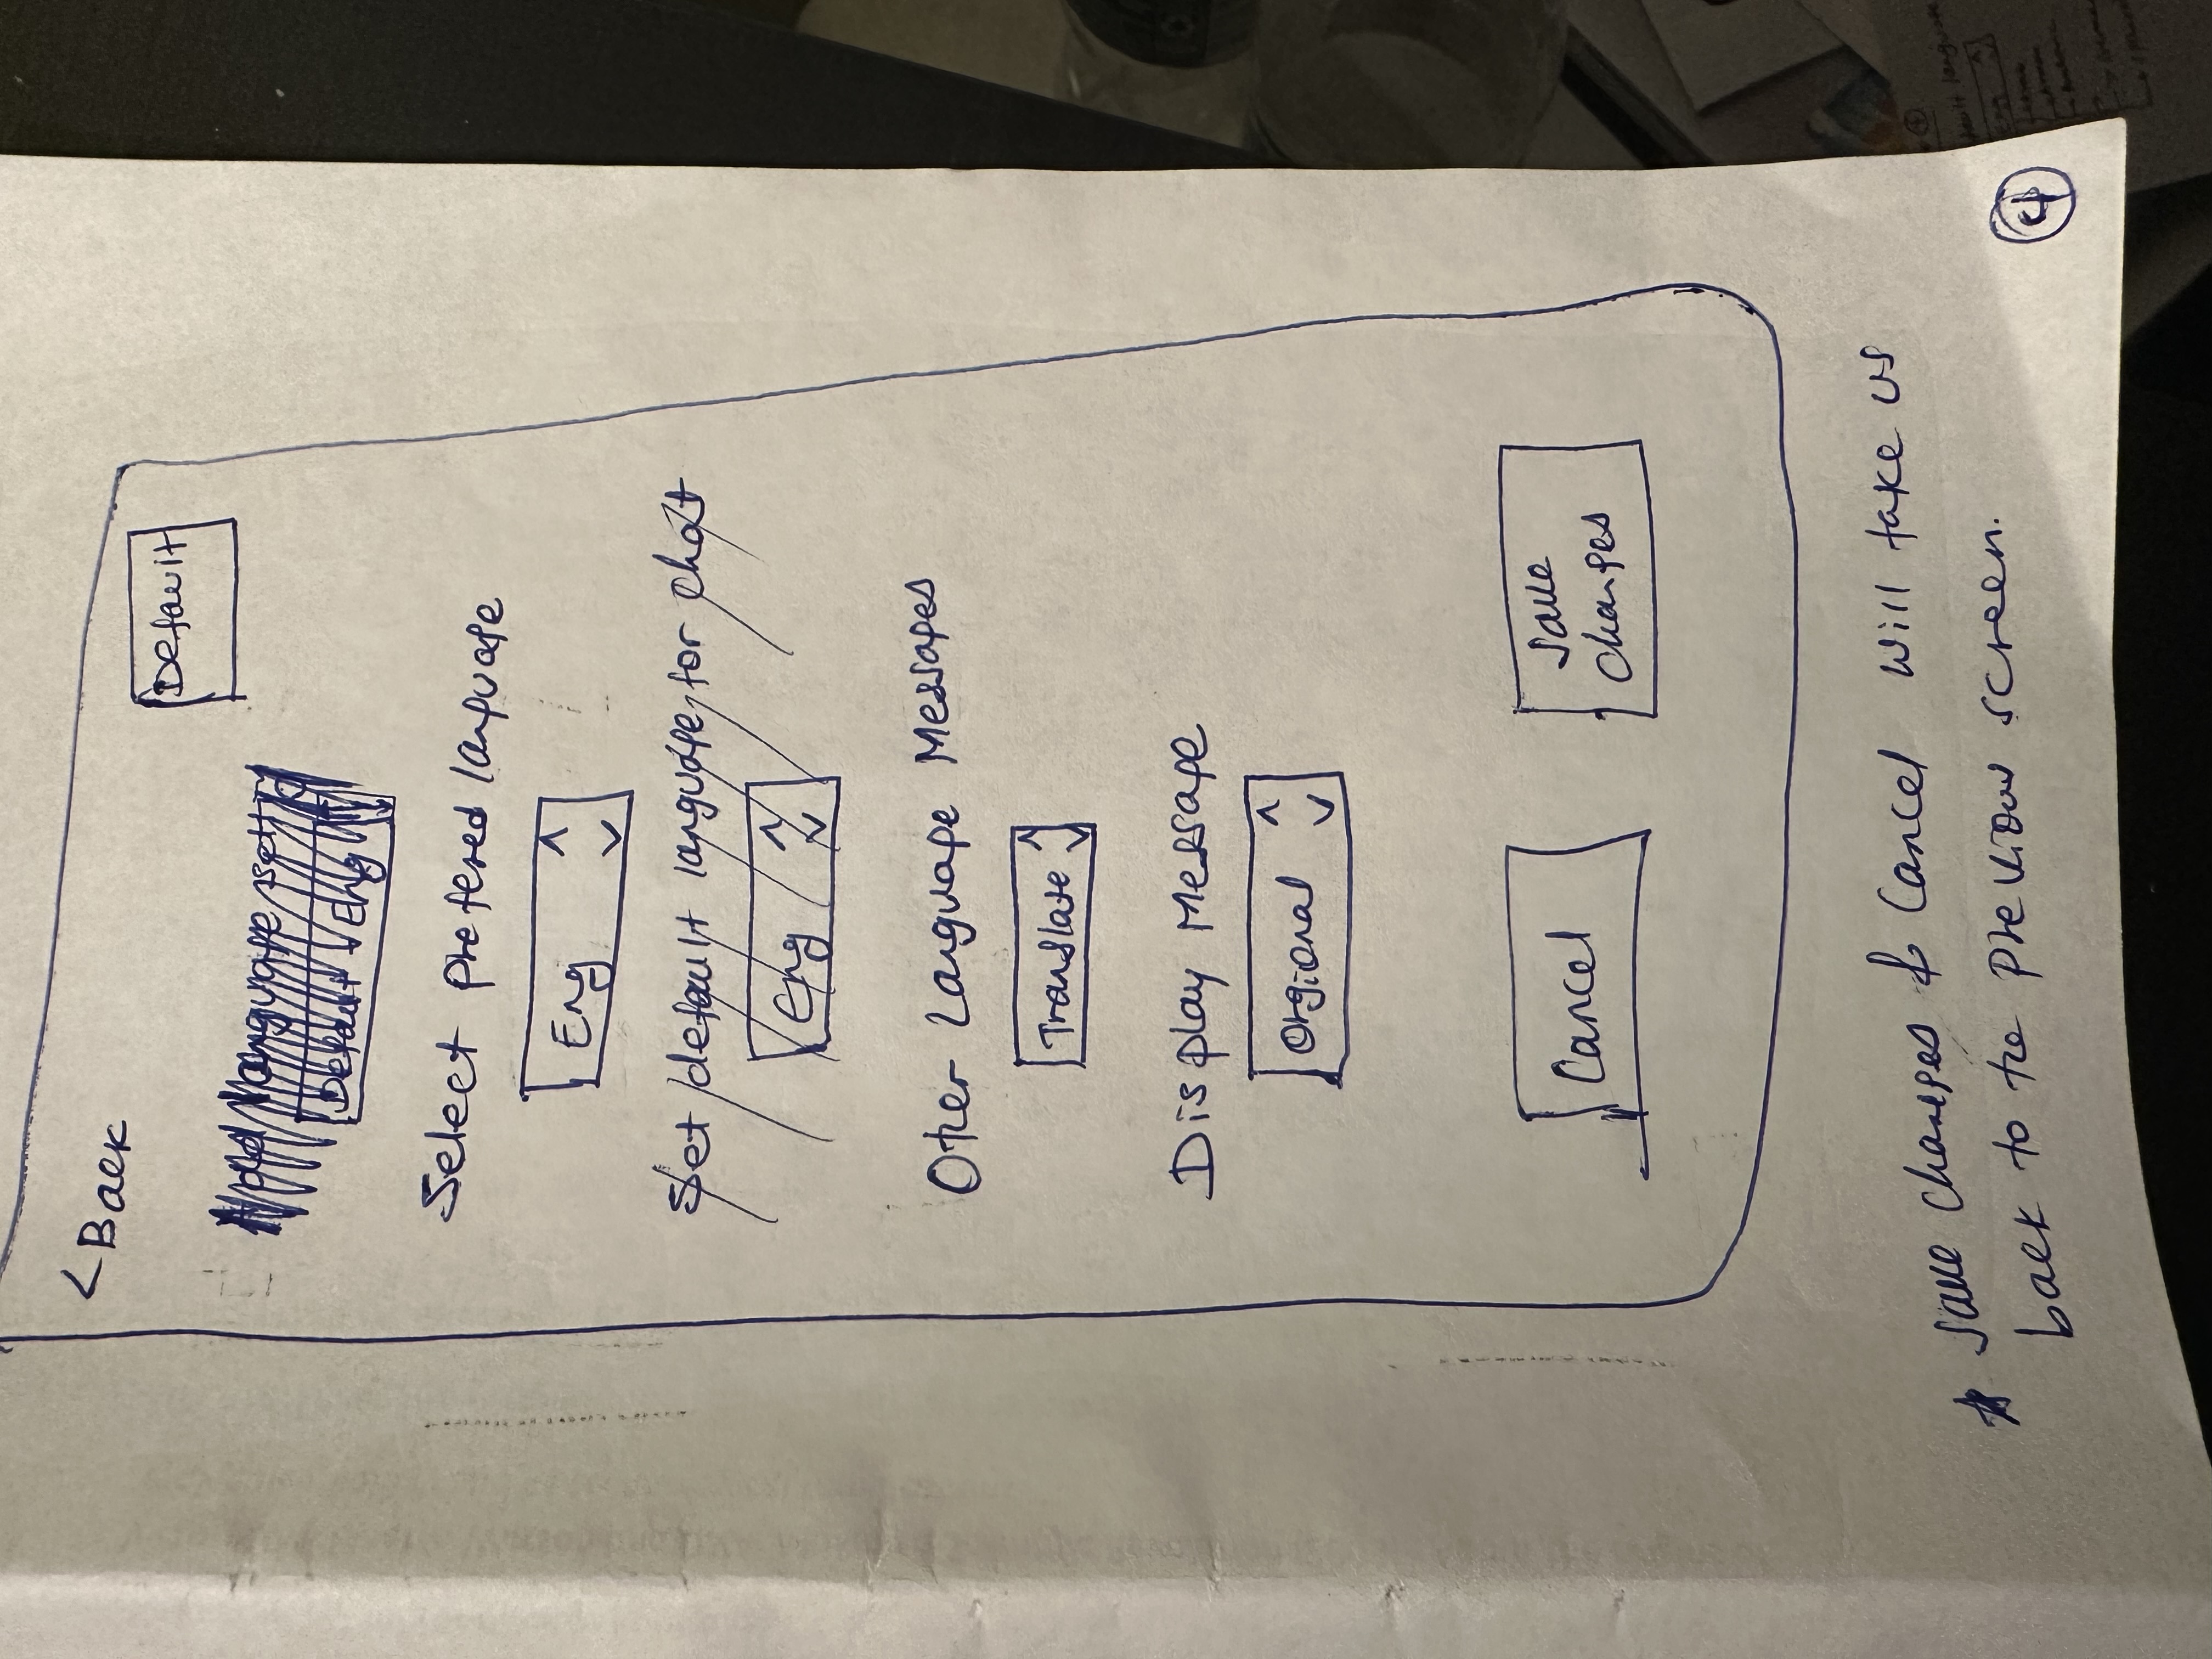 < Back
Default
language setting
Default - Eng
Select prefered language
Eng
Set default language for chat
Eng
Other Language Messages
Translate
Display Message
Orgional
Cancel
Save
changes
* Save changes & Cancel will take us
back to the previous screen.
4